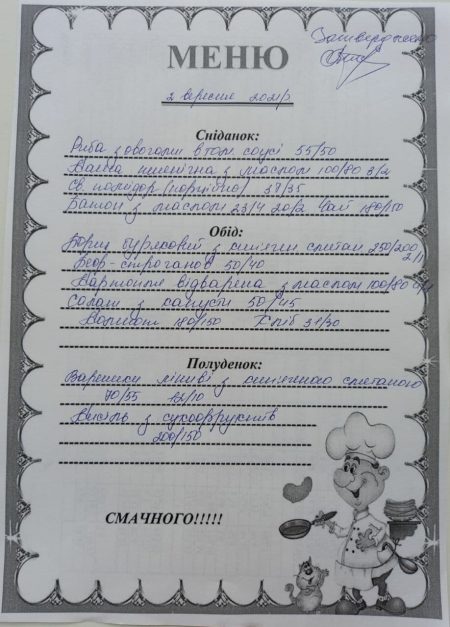 Затверджено
МЕНЮ
2 вересня 2021р
Сніданок:
Риба з овочами в том. соусі 55/50
Каша пшенична з маслом 100/80 3/2
Св. помидор (порційно) 38/35
Батон з маслом 23/4 20/2 Чай 180/150
Обід:
Борщ буряковий з кип'яч сметан 250/200
2/1
Беф-строганов 50/40
Картопля відварена з маслом 100/80
Салат з капусти 50/45
Компот 180/150 Хліб 37/30
Полуденок:
Вареники ліниві з кип'яченою сметаною
70/55 12/10
Кисіль з сухофруктів
200/150
СМАЧНОГО!!!!!